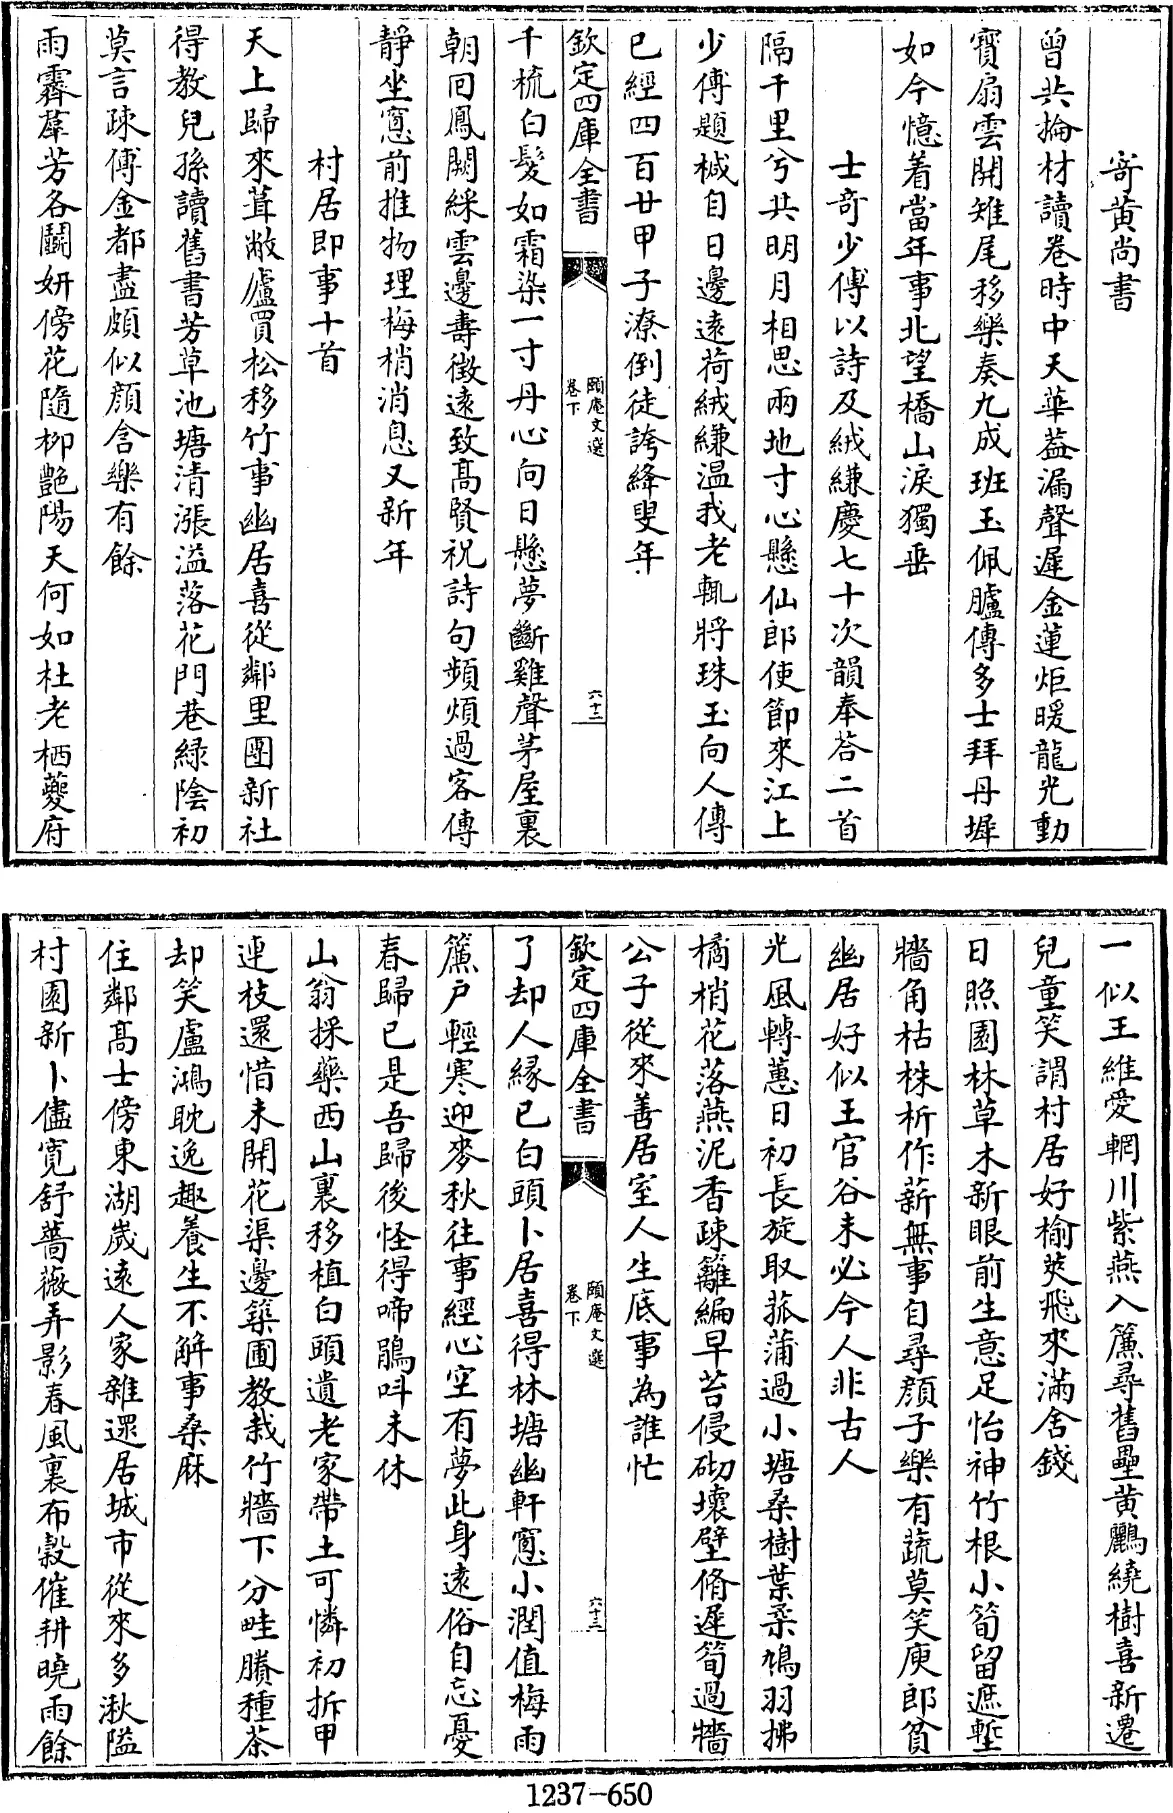 寄黄尚書
曾共掄材讀卷時中天華蓋漏聲遲金蓮炬暖龍光動
寳扇雲開雉尾移樂奏九成班玉佩臚傳多士拜丹墀
如今憶着當年事北望橋山淚獨垂
士奇少傅以詩及絨縑慶七十次韻奉荅二首
隔千里兮共明月相思兩地寸心懸仙郎使節來江上
少傅題椷自日邊遠荷絨縑温我老輒將珠玉向人傳
已經四百廿甲子潦倒徒誇絳叟年
欽定四庫全書
頤庵文選
卷下
六十二
千梳白髮如霜染一寸丹心向日懸夢斷雞聲茅屋裏
朝回鳳闕綵雲邊壽徴遠致髙賢祝詩句頻煩過客傳
靜坐窻前推物理梅梢消息又新年
村居即事十首
天上歸來葺敝廬買松移竹事幽居喜從鄰里團新社
得教兒孫讀舊書芳草池塘清漲溢落花門巷緑隂初
莫言疎傅金都盡頗似顔含樂有餘
雨霽羣芳各鬬妍傍花隨栁艷陽天何如杜老栖夔府
一似王維愛輞川紫燕入簾尋舊壘黄鸝繞樹喜新遷
兒童笑謂村居好榆莢飛來滿舍錢
日照園林草木新眼前生意足怡神竹根小筍留遮塹
牆角枯株析作薪無事自尋顔子樂有蔬莫笑庾郎貧
幽居好似王官谷未必今人非古人
光風轉蕙日初長旋取菰蒲過小塘桑樹葉柔鳩羽拂
橘梢花落燕泥香疎籬編早苔侵砌壊壁脩遲筍過牆
公子從來善居室人生底事為誰忙
欽定四庫全書
頤庵文選
卷下
六十三
了却人緣已白頭卜居喜得林塘幽軒窻小潤值梅雨
簾户輕寒迎麥秋往事經心空有夢此身遠俗自忘憂
春歸已是吾歸後怪得啼鵑呌未休
山翁採藥西山裏移植白頭遺老家帶土可憐初拆甲
連枝還惜未開花渠邊築圃教栽竹牆下分畦賸種茶
却笑盧鴻耽逸趣養生不解事桑麻
住鄰髙士傍東湖嵗遠人家雜遝居城市從來多湫隘
村園新卜儘寛舒薔薇弄影春風裏布榖催耕曉雨餘
1237-650